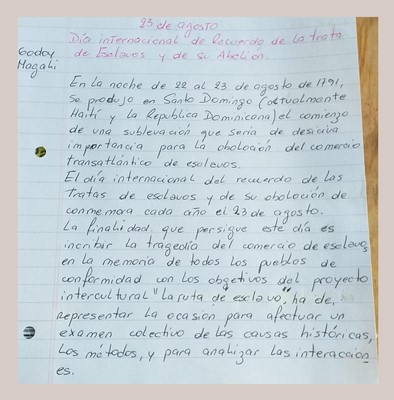 23 de agosto
Día internacional de Recuerdo de la trata
de Esclavos y de su Abolión.
Godoy
Magali
En la noche de 22 al 23 de agosto de 1791,
se produjo en Santo Domingo (actualmente
Haití y la República Dominicana) el comienzo
de una sublevación que sería de desiciva
importancia para la abolación del comercio
transatlántico de esclavos.
El día internacional del recuerdo de las
Tratas de esclavos y de su abolación de
conmemora cada año el 23 de agosto.
La finalidad que persigue este día es
incribir la tragedia del comercio de esclavos
en la memoria de todos los pueblos de
conformidad con los objetivos del proyecto
intercultural "La ruta de esclavo", ha de,
representar la ocasión para afectuar un
examen colectivo de las causas históricas,
Los métodos, y para analizar las interaccion
es.